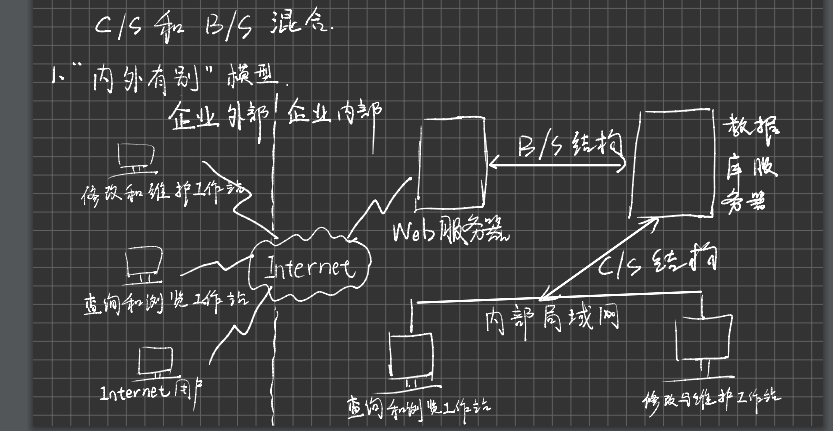 C/S 和 B/S 混合.
1、“内外有别”模型.
企业外部 企业内部
修改和维护工作站
查询和浏览工作站
Internet用户
Internet
Web服务器
B/S结构
数据
库服
务器
C/S结构
内部局域网
查询和浏览工作站
修改与维护工作站